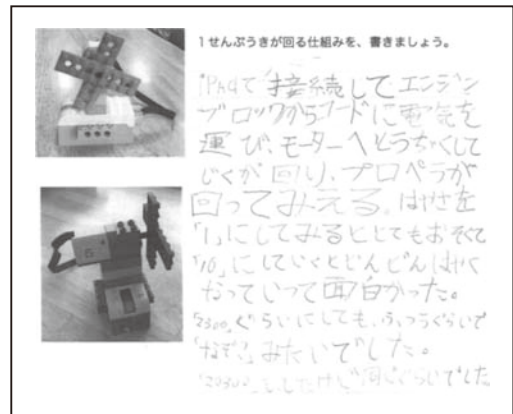 1せんぷうきが回る仕組みを、書きましょう。
iPadで接続してエンジン
ブロックからコードに電気を
運び、モーターへとうちゃくして
じくが回り、プロペラが
回ってみえる。はやさを
「1」にしてみるととてもおそくて
「10」にしていくとどんどんはやく
なっていって面白かった。
「2300」ぐらいにしても、ふつうぐらいで
みたいでした。
「20300」もしたけど同じぐらいでした